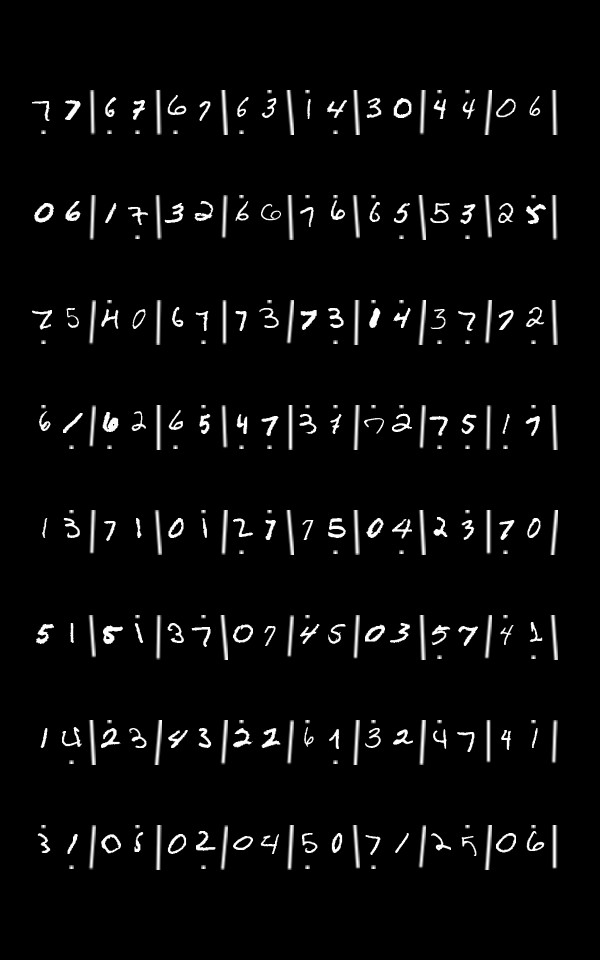 7 7 | 6 7 | 6 7 | 6 3 | 1 4 | 3 0 | 4 4 | 0 6 |
0 6 | 1 7 | 3 2 | 6 6 | 7 6 | 6 5 | 5 3 | 2 5 |
2 5 | 4 0 | 6 7 | 7 3 | 7 3 | 1 4 | 3 7 | 7 2 |
6 1 | 6 2 | 6 5 | 4 7 | 3 7 | 7 2 | 7 5 | 1 7 |
1 3 | 7 1 | 0 1 | 2 7 | 7 5 | 0 4 | 2 3 | 7 0 |
5 1 | 5 1 | 3 7 | 0 7 | 4 5 | 0 3 | 5 7 | 4 1 |
1 4 | 2 3 | 4 3 | 2 2 | 6 1 | 3 2 | 4 7 | 4 1 |
3 1 | 0 5 | 0 2 | 0 4 | 5 0 | 7 1 | 2 5 | 0 6 |